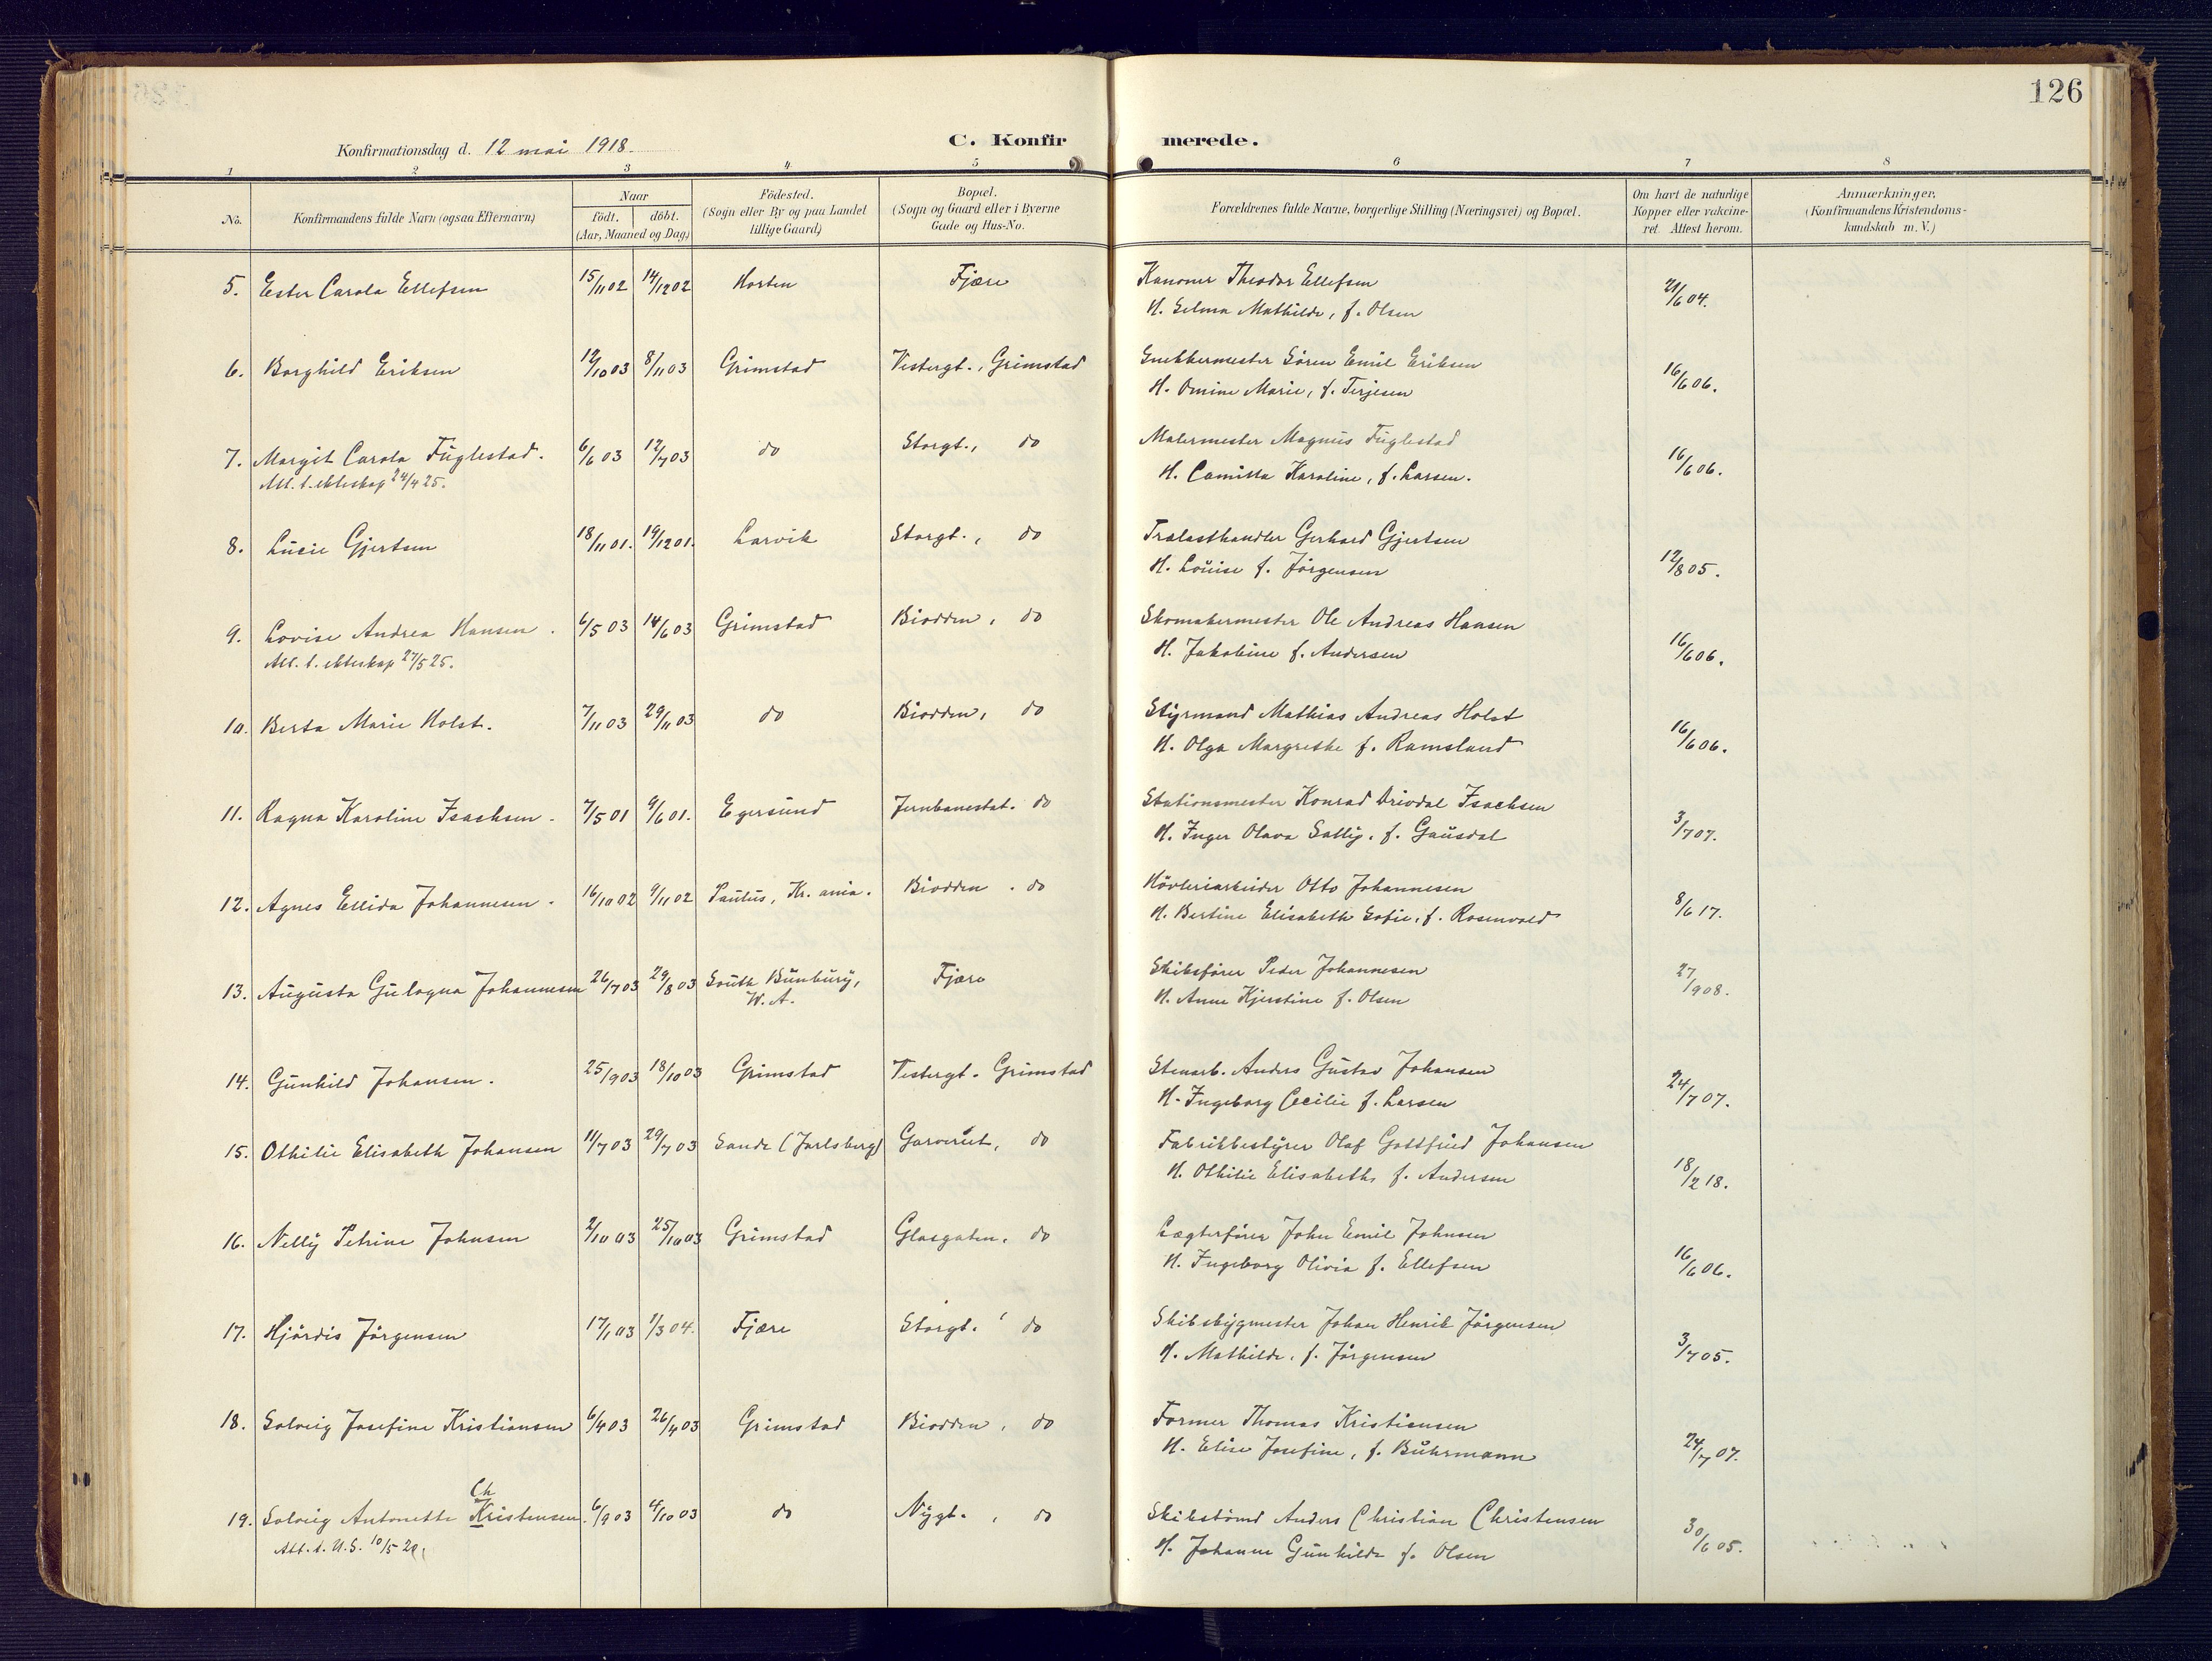 126
Konfirmationsdag d. 12 mai 1918.
C. Konfirmerede.
1 2 3 4 5 6 7 8
No. Konfirmandens fulde Navn (ogsaa Efternavn) Naar födt. döbt. (Aar, Maaned og Dag) Födested. (Sogn eller By og paa Landet tillige Gaard) Bopæl. (Sogn og Gaard eller i Byerne Gade og Hus-No. Forældrenes fulde Navne, borgerlige Stilling (Næringsvei) og Bopæl. Om havt de naturlige Kopper eller vaccineret. Attest herom. Anmærkninger, (Konfirmandens Kristendomskundskab m. V.)
5. Ester Carola Ellefsen 15/11 02 14/12 02 Horten Fjære Kanoner Theodor Ellefsen 21/6 04.
H. Selma Mathilde, f. Olsen
6. Borghild Eriksen 12/10 03 8/11 03 Grimstad Vestergt., Grimstad Snekkermester Sören Emil Eriksen 16/6 06.
H. Omine Marie, f. Terjesen
7. Margit Carola Fuglestad. 6/6 03 12/7 03 do Storgt., do Malermester Magnus Fuglestad 16/6 06.
Att. t. ekteskap 24/4 25. H. Camilla Karoline, f. Larsen.
8. Lucie Gjertsen 18/11 01. 19/12 01. Larvik Storgt., do Trælasthandler Gerhard Gjertsen 12/8 05.
H. Louise f. Jörgensen
9. Lovise Andrea Hansen. 6/5 03 14/6 03 Grimstad Biodden, do Skomakermester Ole Andreas Hansen 16/6 06.
Att. t. ekteskap 27/5 25. H. Jakobine f. Andersen
10. Berta Marie Holst. 7/11 03 29/11 03 do Biodden, do Styrmand Mathias Andreas Holst 16/6 06.
H. Olga Margrethe f. Ramsland
11. Ragna Karoline Isachsen. 7/5 01 9/6 01. Egersund Jernbanestat. do Stationsmester Konrad Isachsen 3/7 07.
H. Inger Olava Sally, f. Gausdal
12. Agnes Ellida Johannesen. 16/10 02 9/11 02 Paulus, Kr.ania. Biodden. do Hövleriarbeider Otto Johannesen 8/6 17.
H. Bertine Elisabeth Sofie, f. Rosenvold
13. Augusta Gulagna Johannesen 26/7 03 29/8 03 South Bunbury, W.A. Fjære Skibsförer Peder Johannesen 27/9 08.
H. Anne Kjerstine f. Olsen
14. Gunhild Johansen. 25/9 03 18/10 03 Grimstad Vestergt. Grimstad Stenarb. Anders Gustav Johansen 24/7 07.
H. Ingeborg Cecilie f. Larsen
15. Othilie Elisabeth Johansen 11/7 03 29/7 03 Sande (Jarlsberg) Garveriet, do Fabrikbestyrer Olaf Gottfried Johansen 18/2 18.
H. Othilie Elisabeth f. Andersen
16. Nelly Petrine Johnsen 2/10 03 25/10 03 Grimstad Glasgaten, do Lægterförer John Emil Johnsen 16/6 06.
H. Ingeborg Olivia f. Ellefsen
17. Hjördis Jörgensen 17/1 03 1/3 04. Fjære Storgt. do Skibsbygmester Johan Henrik Jörgensen 3/7 05.
H. Mathilde, f. Jörgensen
18. Solveig Josefine Kristiansen 6/4 03 26/4 03 Grimstad Biodden, do Former Thomas Kristiansen 24/7 07.
H. Elise Josefine, f. Buhrmann
Ch
19. Solveig Antonette Kristensen. 6/9 03 4/10 03 do Nygt., do Skibstömd Anders Christian Christensen 30/6 05.
Att. t. U.S. 10/5 20. H. Johanne Gunhilde f. Olsen